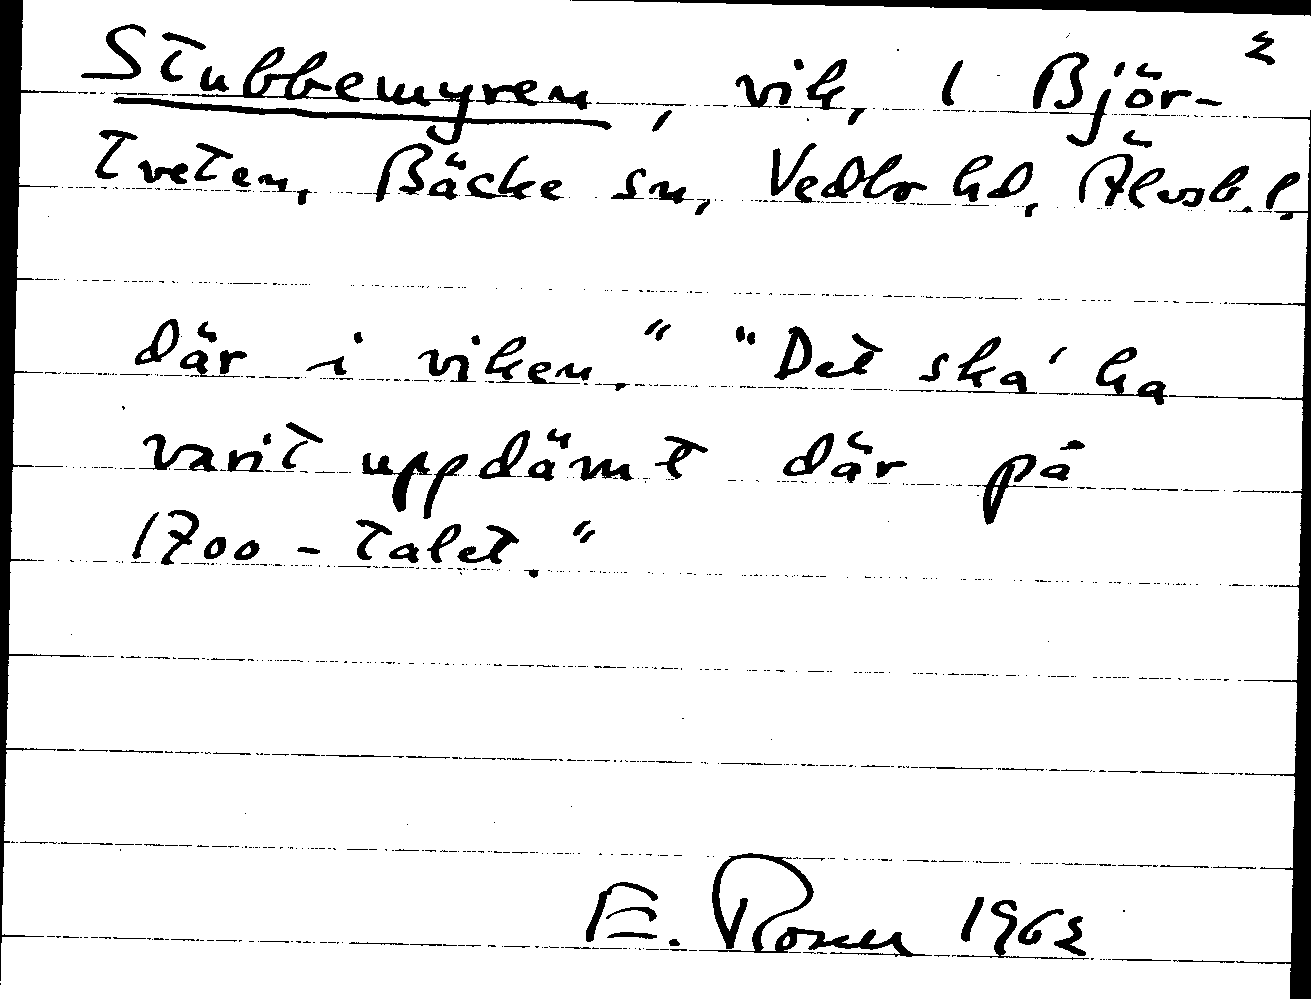 2
Stubbemyren, vik, 1 Björ-
tveten, Bäcke sn, Vedbo hd, Älvsb. l.
där i viken." "Det ska' ha
varit uppdämt där på
1700-talet."
E. Rosen 1962